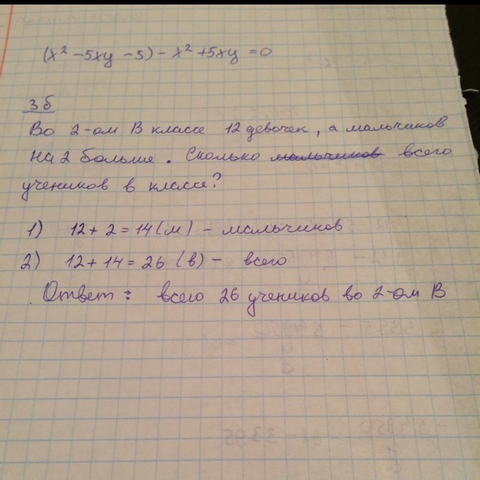 (x² - 5xy - 5) - x² + 5xy = 0
3б
Во 2-ом В классе 12 девочек, а мальчиков
на 2 больше. Сколько мальчиков всего
учеников в классе?
1) 12 + 2 = 14 (м) - мальчиков
2) 12 + 14 = 26 (в) - всего
Ответ: всего 26 учеников во 2-ом В